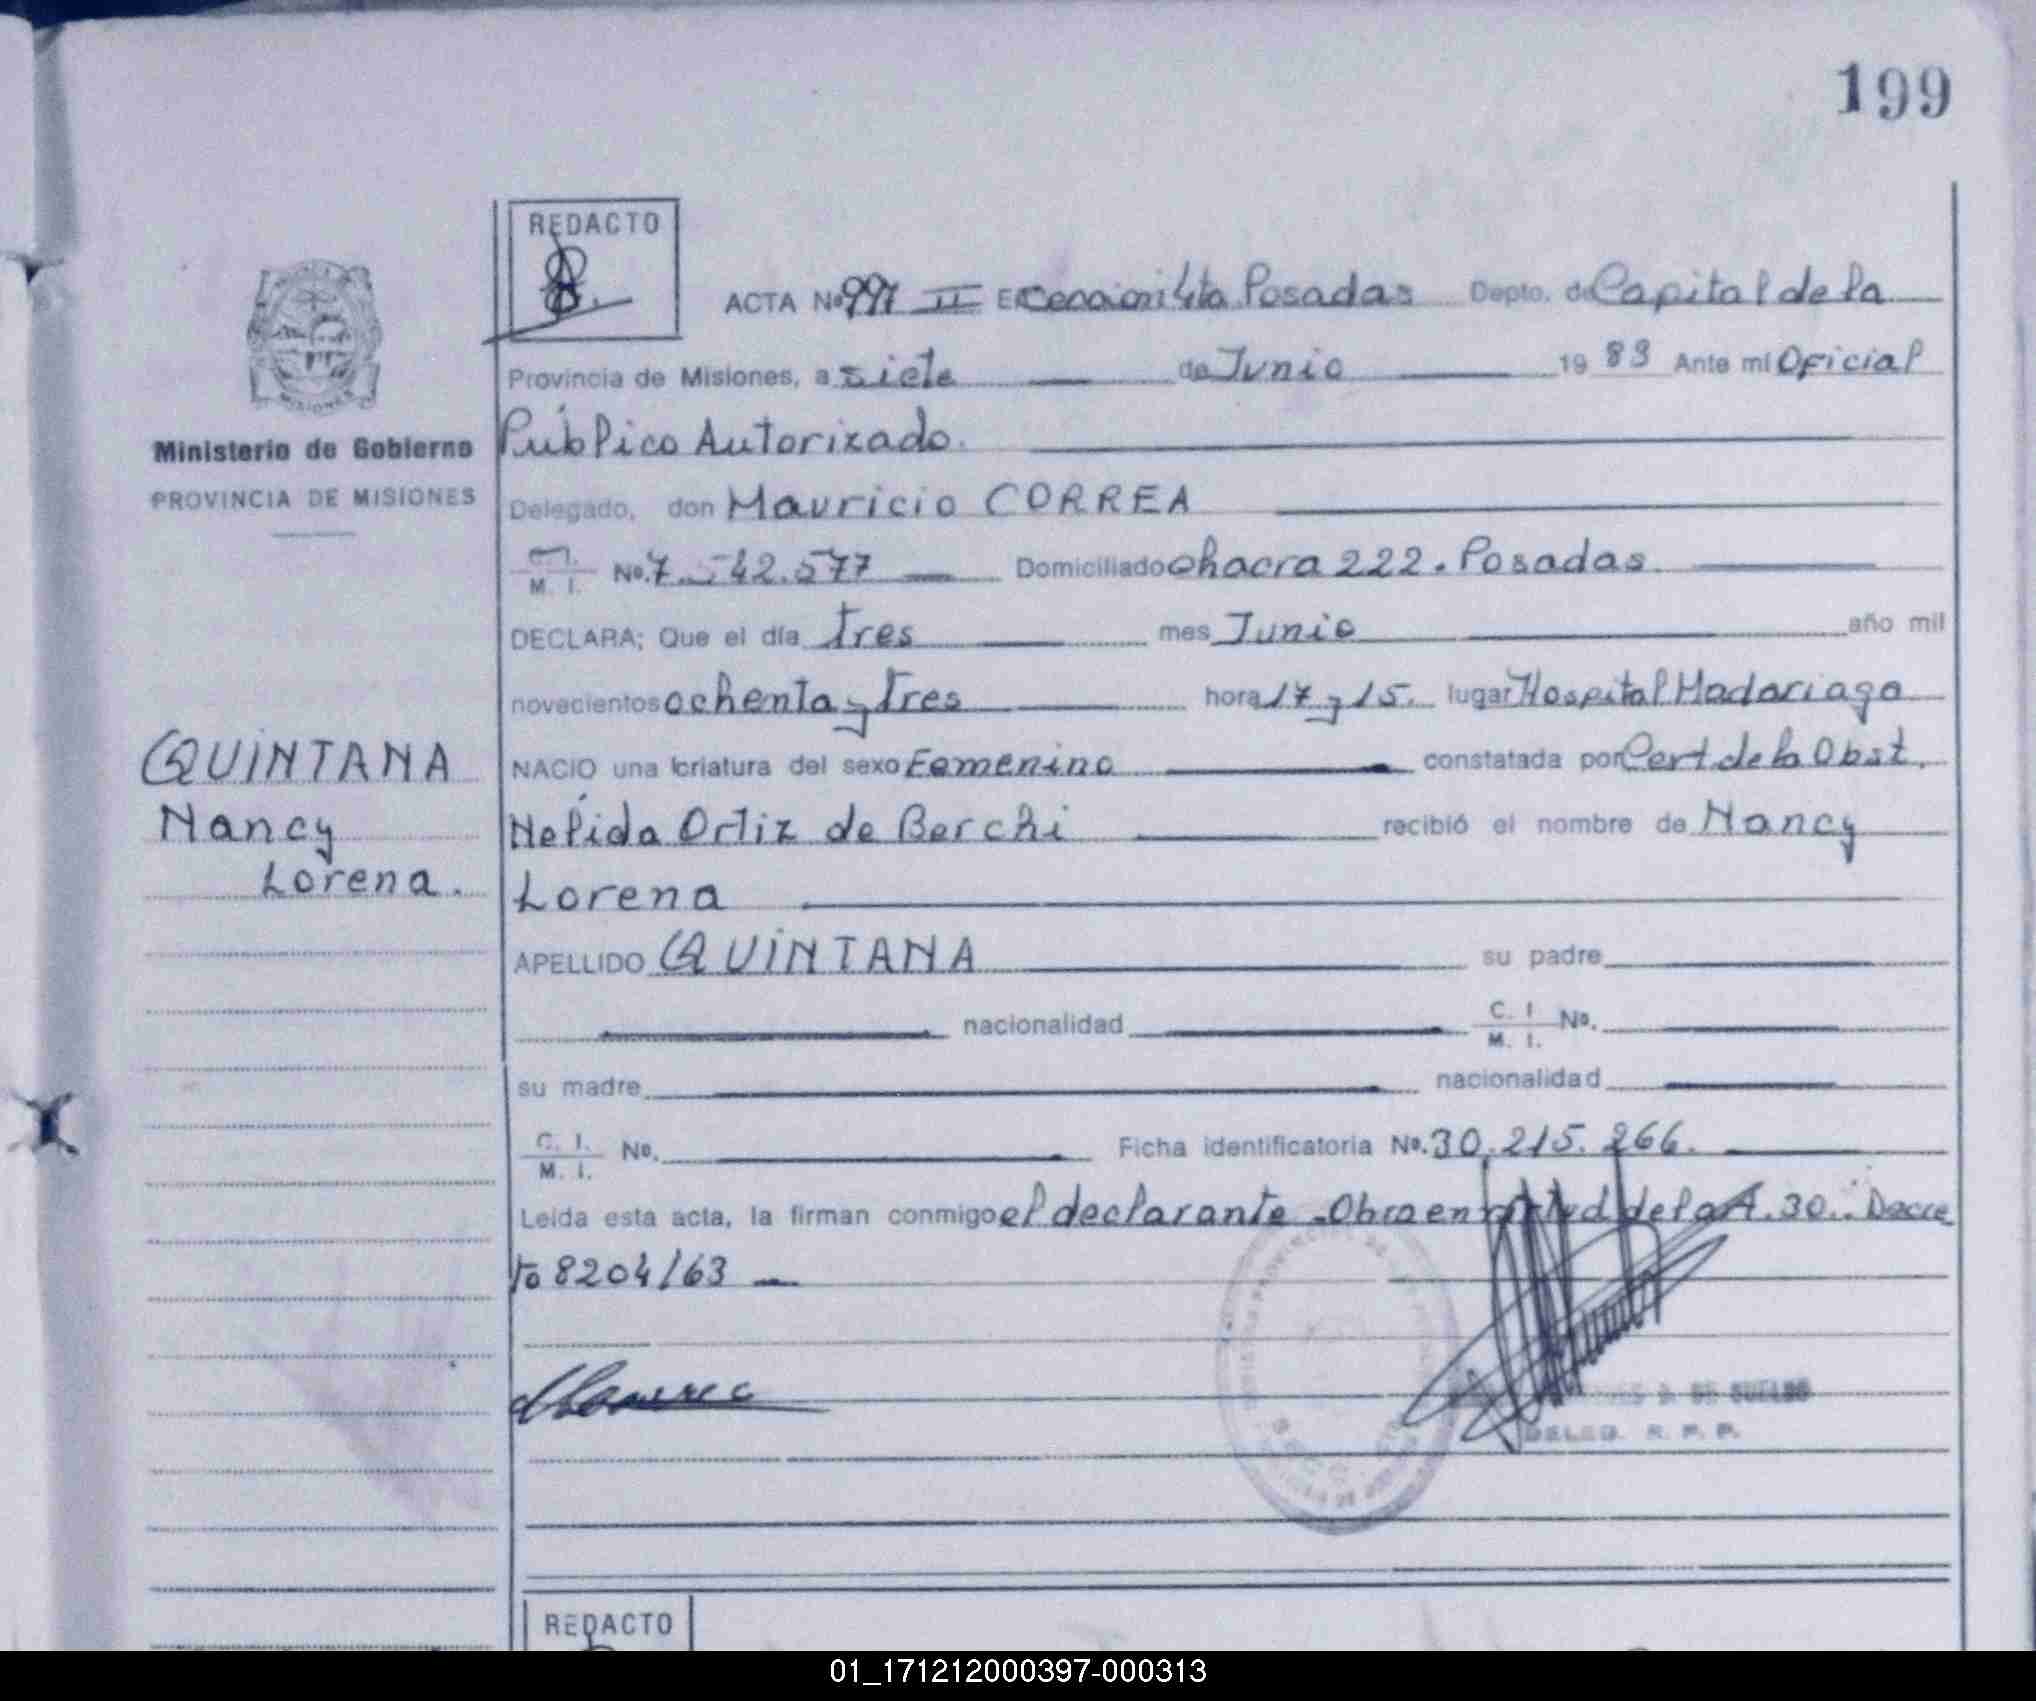 199
REDACTO
ACTA Nº 991 II En Sección 4ta Posadas Depto. de Capital de la
Provincia de Misiones, a siete de Junio 19 83 Ante mi Oficial
Ministerio de Gobierno
Público Autorizado.
PROVINCIA DE MISIONES
Delegado, don Mauricio CORREA
C. I. M. I. Nº. 7.542.577 Domiciliado Chacra 222. Posadas
DECLARA; Que el día Tres mes Junio año mil
novecientos ochenta y Tres hora 17 y 15. lugar Hospital Madariaga
QUINTANA
NACIO una criatura del sexo Femenino constatada por Cert de la Obst.
Nancy
Nelida Ortiz de Berchi recibió el nombre de Nancy
Lorena.
Lorena
APELLIDO QUINTANA su padre
nacionalidad C. I M. I. Nº.
su madre nacionalidad
C. I. M. I. Nº. Ficha identificatoria Nº. 30.215.266.
Leída esta acta, la firman conmigo el declarante - Obra en del A. 30. Decre
to 8204/63
DE SUELDO
DELEG. R. P. P.
REDACTO
01_171212000397-000313